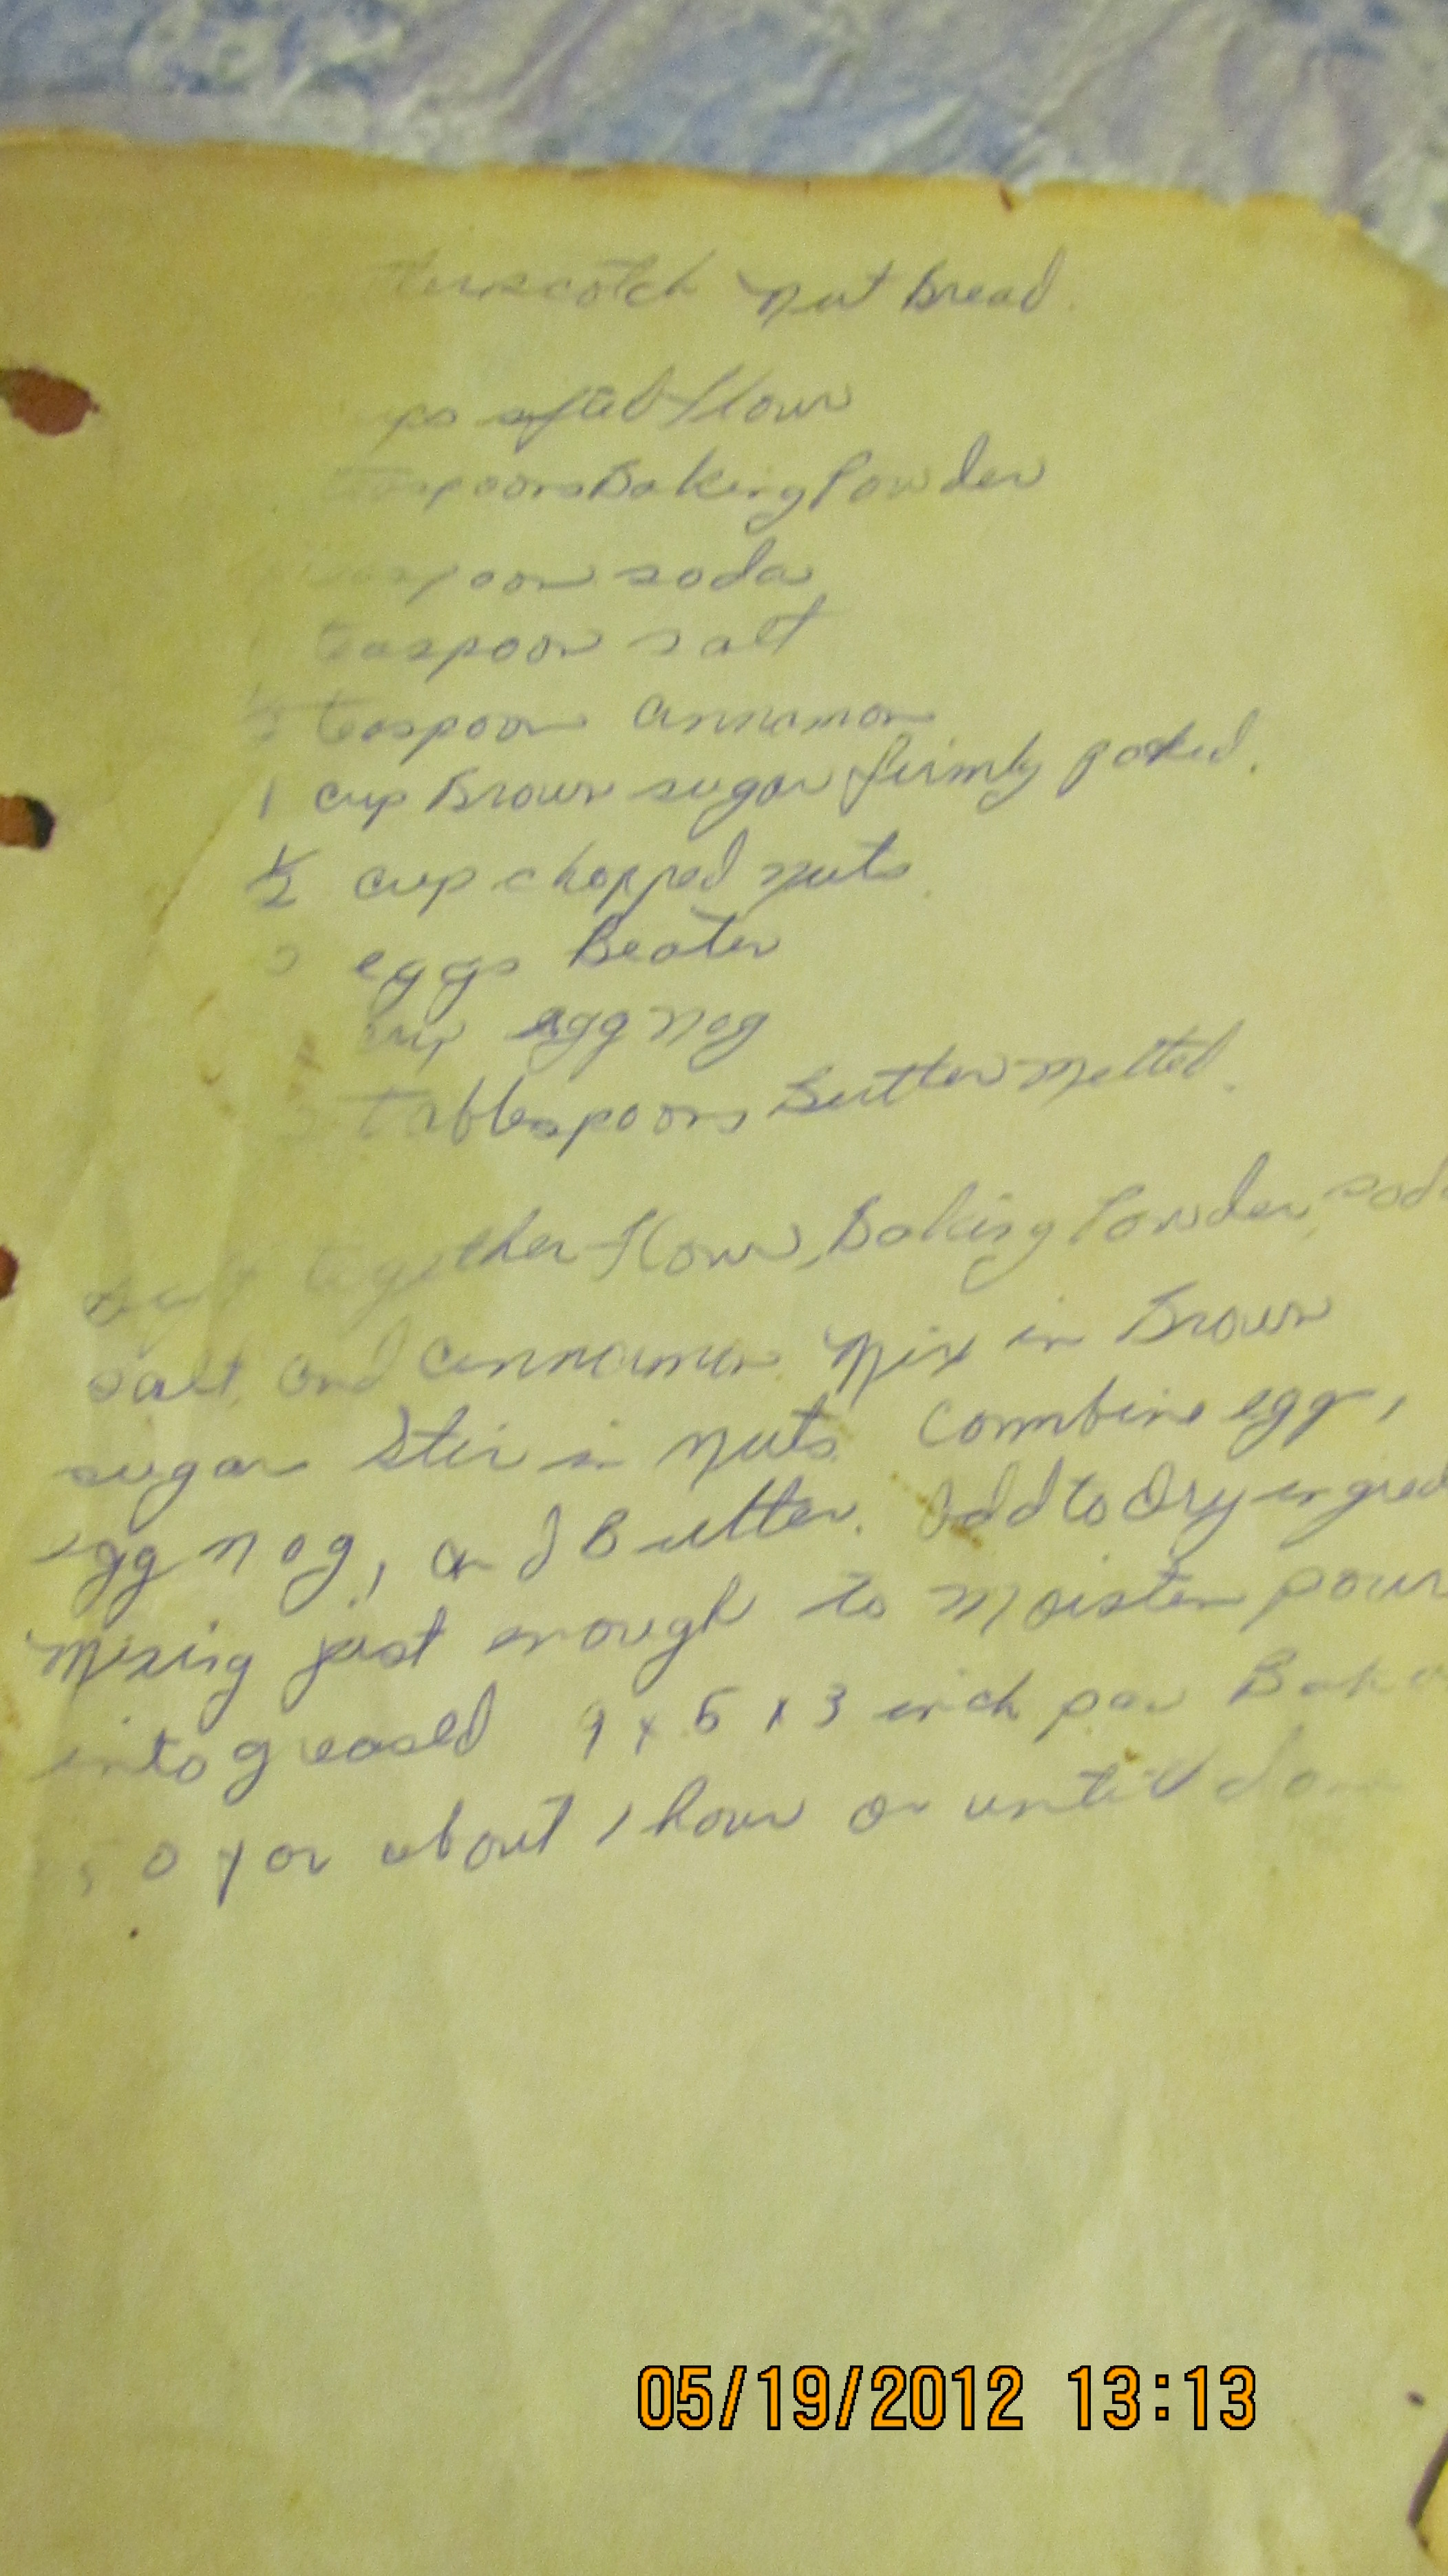 terscotch nut Bread.
ps sifted flour
teaspoons Baking Powder
teaspoon soda
teaspoon salt
½ teaspoon cinnamon
1 cup Brown sugar firmly packed.
½ cup chopped nuts.
eggs Beaten
cup egg nog
tablespoons Butter melted.
Sift together flour, Baking Powder, soda
salt, and cinnamon. Mix in Brown
sugar Stir in nuts. Combine egg,
egg nog, and Butter. Add to Dry ingred
Mixing just enough to moisten pour
into greased 9 x 5 x 3 inch pan Bake
50 for about 1 hour or until done
05/19/2012 13:13